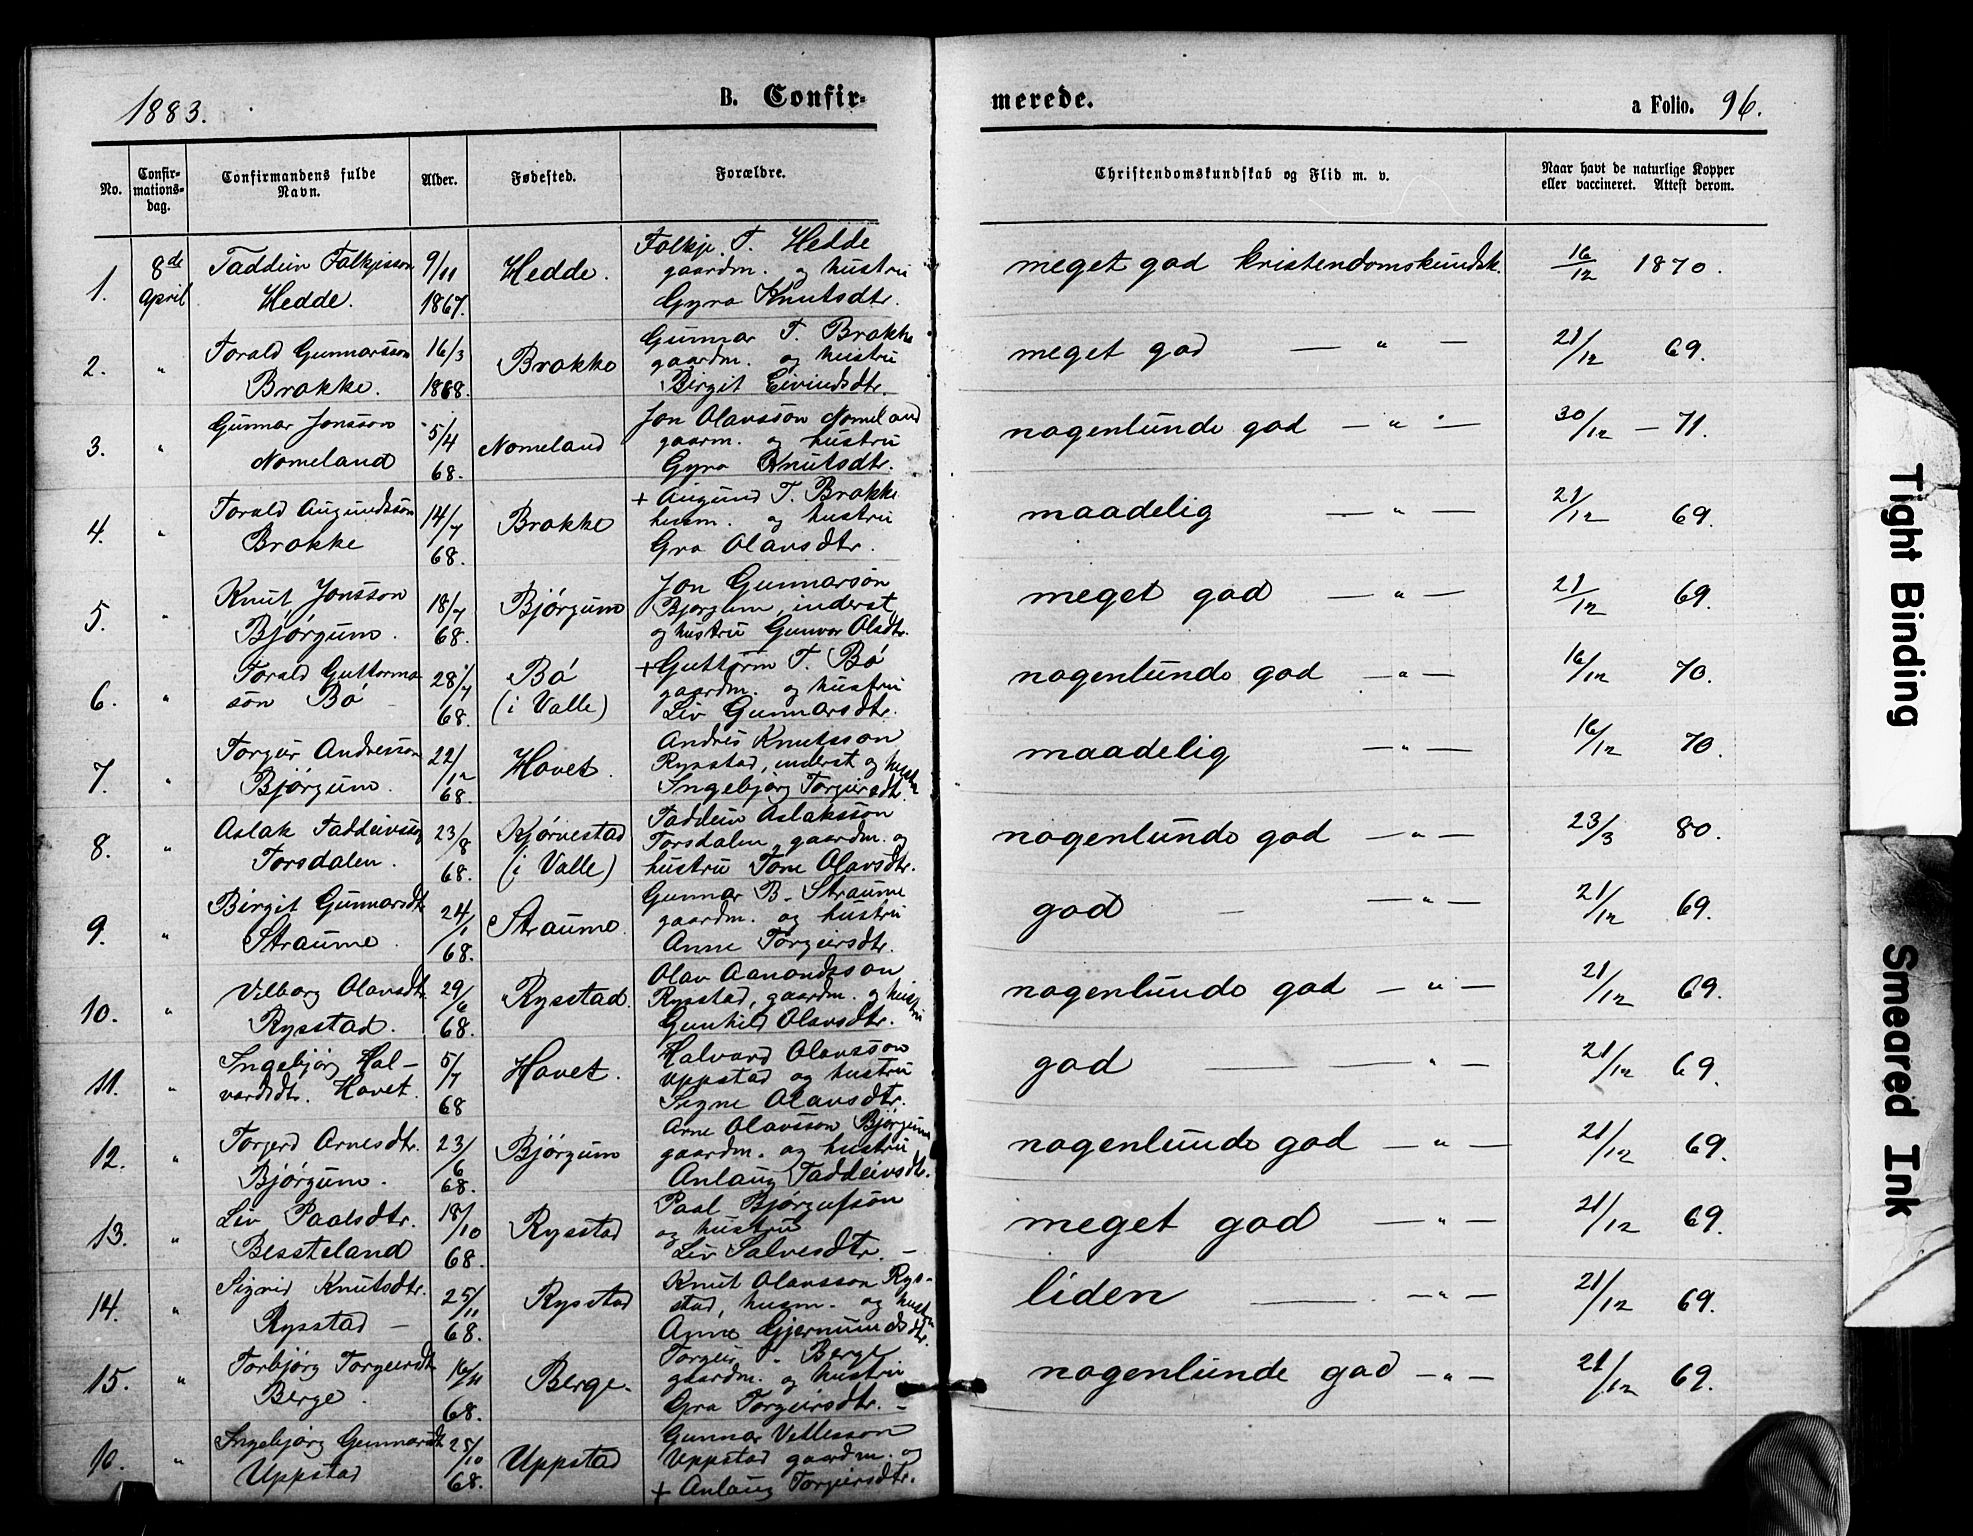 1883.
B. Confir-
merede.
a Folio. 96.
No.
Confir-
mations-
dag.
Confirmandens fulde
Navn.
Alder.
Fødested.
Forældre.
Christendomskundskab og Flid m. v.
Naar havt de naturlige Kopper
eller vaccineret. Attest derom.
1. 8de April Taddeiv Falkjesson Hedde. 9/11 1867. Hedde. Falkje T. Hedde gaardm. og hustru Gyro Knutsdtr. meget god kristendomskundsk. 16/12 1870.
2. " Torald Gunnarsson Brokke. 16/3 1868. Brokke Gunnar T. Brokke gaardm. og hustru Birgit Eivindsdtr. meget god — " — 21/12 69.
3. " Gunnar Jonsson Nomeland 5/4 68. Nomeland Jon Olavsson Nomeland gaarm. og hustru Gyro Knutsdtr. nogenlunde god — " — 30/12 — 71.
4. " Torald Augundssøn Brokke 14/7 68. Brokke + Augund T. Brokke husm. og hustru Gro Olavsdtr. maadelig — " — 21/12 69.
5. " Knut Jonsson Bjørgum. 18/7 68. Bjørgum Jon Gunnarsøn Bjørgum, inderst, og hustru Gunvor Olsdtr. meget god — " — 21/12 69.
6. " Torald Guttormssøn Bø 28/7 68. Bø (i Valle) + Guttorm T. Bø gaardm. og hustru Liv Gunnarsdtr. nogenlunde god — " — 16/12 70.
7. " Torgeir Andresson Bjørgum. 22/12 68. Hovet. Andres Knutsson Rysstad, inderst og hustru Ingebjørg Torgeirsdtr. maadelig — " — 16/12 70.
8. " Aslak Taddeivsson Torsdalen. 23/8 68. Kjørvestad (i Valle) Taddeiv Aslaksson Torsdalen, gaardm. og hustru Tone Olavsdtr. nogenlunde god — " — 23/3 80.
9. " Birgit Gunnarsdtr Straume. 24/1 68. Straume. Gunnar B. Straume gaardm. og hustru Anne Torgeirsdtr. god — — " — 21/12 69.
10. " Vilborg Olavsdtr. Rysstad. 29/6 68. Rysstad. Olav Aanondsson Rysstad, gaardm. og hustru Gunhild Olavsdtr. nogenlunde god — " — 21/12 69.
11. " Ingebjørg Hal-vardsdtr. Hovet. 5/7 68 Hovet. Halvard Olavsson Uppstad og hustru Signe Olavsdtr. god — " — 21/12 69.
12. " Torgerd Arnesdtr. Bjørgum. 23/6 68. Bjørgum Arne Olavsson Bjørgum gaardm. og hustru Anlaug Taddeivsdtr. nogenlunde god — " — 21/12 69.
13. " Liv Paalsdtr. Bessteland 18/10 68. Rysstad Paal Bjørgufsøn og hustru Liv Salvesdtr. — meget god — " — 21/12 69.
14. " Sigrid Knutsdtr. Rysstad — 25/11 68. Rysstad Knut Olavsson Rys-stad, husm. og hustru Anne Gjermundsdtr. liden — — " — 21/12 69.
15. " Torbjørg Torgeirsdtr Berge. 16/11 68. Berge. Torgeir T. Berge gaardm. og hustru Gro Torgeirsdtr. — nogenlunde god — " — 21/12 69.
16. " Ingebjørg Gunnarsdtr Uppstad 25/10 68. Uppstad Gunnar Vetlesson Uppstad gaardm. og + Anlaug Torgeirsdtr.
Tight Binding
Smeared Ink